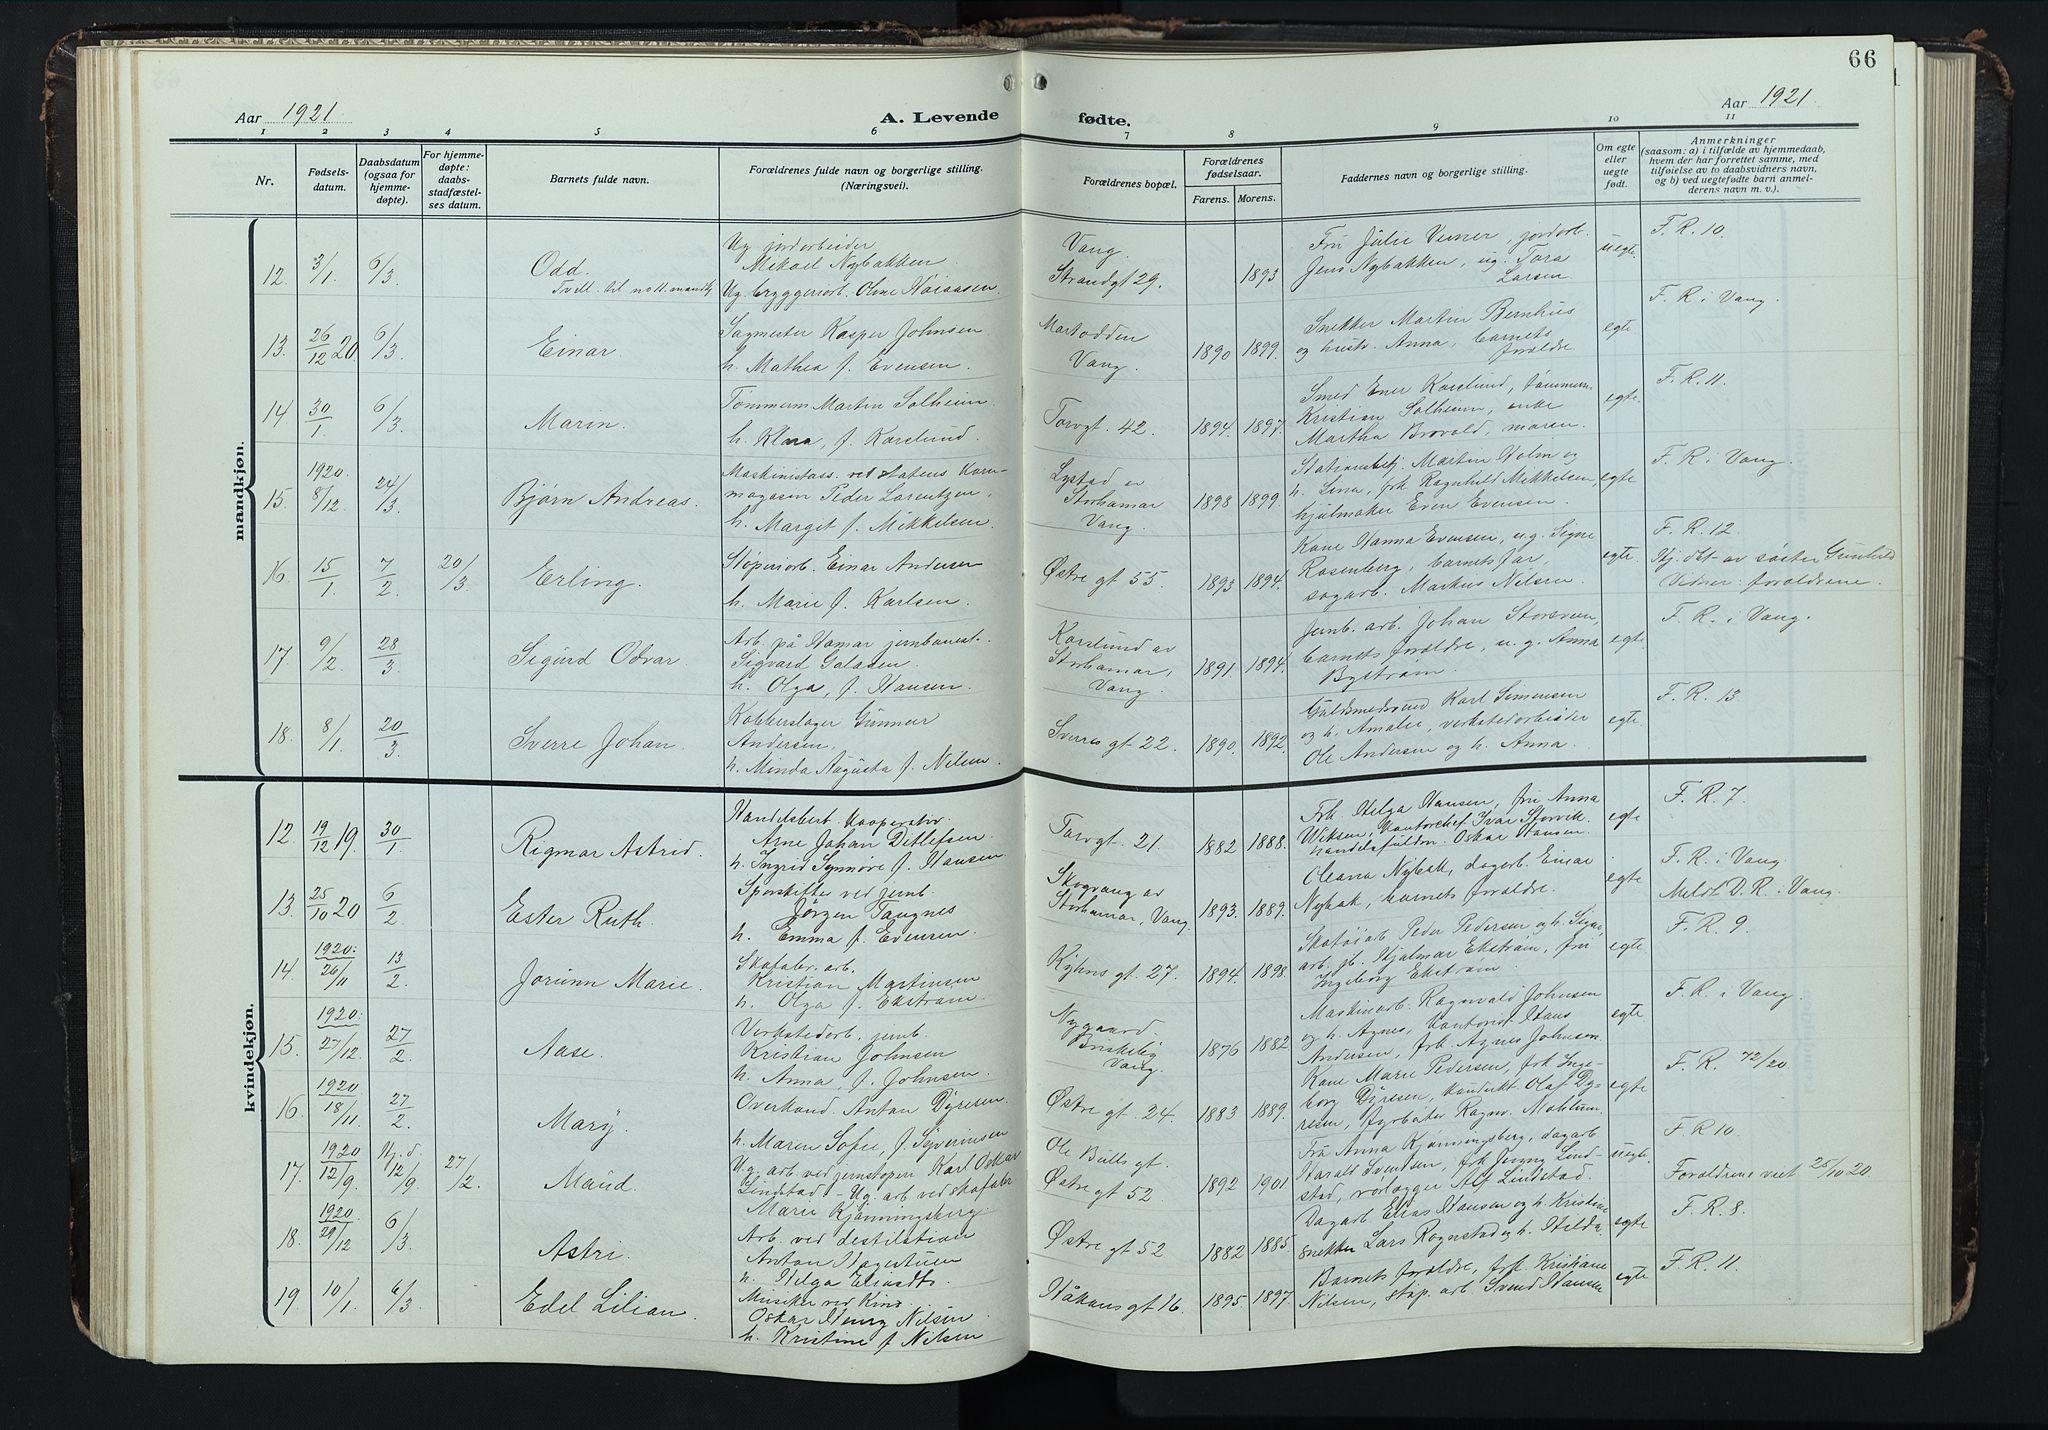 66
Aar 1921
A. Levende fødte.
Aar 1921
1 2 3 4 5 6 7 8 9 10 11
Nr.
Fødsels-
datum.
Daabsdatum
(ogsaa for
hjemme-
døpte).
For hjemme-
døpte:
daabs-
stadfæstel-
ses datum.
Barnets fulde navn.
Forældrenes fulde navn og borgerlige stilling.
(Næringsvei).
Forældrenes bopæl.
Forældrenes
fødselsaar.
Farens. Morens.
Faddernes navn og borgerlige stilling.
Om egte
eller
uegte
født.
Anmerkninger
(saasom: a) i tilfælde av hjemmedaab,
hvem der har forrettet samme, med
tilføielse av to daabsvidners navn,
og b) ved uegtefødte barn anmel-
derens navn m. v.).
mandkjøn.
12. 3/1 6/3
Odd.
Tvill. til no 11. mandkj
Ug. jordarbeider
Mikael Nybakken.
Ug. bryggeriarb. Oline Høiaasen
Vang.
Strandgt 29.
1893
Fru Julie Verner, jordarb.
Jens Nybakken, ug. Tora
Larsen
uegte
F. R. 10.
13. 26/12 20 6/3
Einar.
Sagmester Kasper Johnsen
h. Mathea f. Evensen.
Martodden
Vang.
1890 1899.
Snekker Martin Bernhus
og hustr. Anna, barnets
forældre
egte
F. R i Vang.
14 30/1 6/3
Marin.
Tømmerm Martin Solheim.
h. Klara, f. Karslund.
Torvgt. 42.
1894. 1897.
Smed Ener Karslund, tømmerm.
Kristian Solheim, enke
Martha Brovald, moren.
egte.
F. R. 11.
15. 1920. 8/12. 24/3
Bjørn Andreas.
Maskinistass. ved Statens Korn-
magasin Peder Lorentzen,
h. Margit f. Mikkelsen.
Lystad av
Storhamar
Vang.
1898 1899.
Stationsbetj. Martin Holm og
h. Lina, frk Ragnhild Mikkelsen,
hjulmaker Even Evensen.
egte
F. R i Vang.
16. 15/1 7/2 20/3
Erling.
Støperiarb. Einar Andersen
h. Marie f. Karlsen.
Østre gt 55.
1893 1894.
Kone Hanna Evensen, u.g. Signe
Rosenberg, barnets far,
sagarb. Markus Nilsen.
egte
F. R. 12.
Hj. døt av søster Gunhild
Vidner: forældrene.
17. 9/2 28/3
Sigurd Odvar.
Arb. på Hamar jernbanest.
Sigvard Galaasen.
h. Olga, f. Hansen.
Karslund av
Storhamar,
Vang.
1891. 1894.
Jernb. arb. Johan Storsveen,
barnets forældre, u. g. Anna
Bystrøm.
egte.
F. R. i Vang.
18. 8/1 20/3
Sverre Johan.
Kobberslager Gunnar
Andersen,
h. Minda Augusta f. Nilsen.
Sverres gt. 22.
1890. 1892.
Guldsmedsvend Karl Simensen
og h. Amalie, verkstedarbeider
Ole Andersen og h. Anna.
egte
F. R. 13
kvindekjøn.
12. 19/12 19. 30/1
Rigmar Astrid.
Handelsbest. Kooperativ.
Arne Johan Ditlefsen.
h. Ingrid Synnøve f. Hansen.
Torvgt. 21.
1882 1888.
Frk Helga Hansen, fru Anna
Wiksen, kontorchef Ivar Storvik.
handelsfuldm. Oskar Hansen.
egte
F. R. 7.
13. 25/10 20 6/2
Ester Ruth.
Sporskifter ved jernb.
Jörgen Tangnes
h. Emma f. Evensen.
Skogvang av
Storhamar, Vang.
1893. 1889.
Oleana Nybak, dagarb. Einar
Nybak, barnets forældre.
egte
F. R. i Vang
Meldt D. R. i Vang.
14. 1920: 26/11 13/2
Jorunn Marie.
Skofabr. arb.
Kristian Martinsen
h. Olga f. Ekstrøm.
Kyhns gt. 27.
1894. 1898.
Skotøiarb Peder Pedersen og h. Signe,
arb. gb. Hjalmar Ekstrøm, fru
Ingeborg Ekstrøm.
egte
F. R. 9
15. 1920: 27/12. 27/2
Aase.
Verkstedarb. jernb.
Kristian Johnsen
h. Anna, f. Johnsen.
Nygaard.
Briskeby
Vang.
1876 1882
Maskinarb. Ragnvald Johnsen
og h. Agnes, kontorist Hans
Andersen, frk. Agnes Johnsen.
egte
F. R. i Vang.
16 1920 18/11. 27/2.
Mary.
Overkond. Anton Dyresen.
h. Maren Sofie, f. Syverinsen
Østre gt. 24.
1883 1889.
Kone Marie Pedersen, frk Inge-
borg Dyresen, kondukt. Olaf Dy-
resen, fyrbøter Ragnv. Mohlum.
egte
F. R. 72/20
17. 1920 12/9. Hj. d. 12/9 27/2
Maud.
Ug. arb. ved jernstøperi Karl Oskar
Lindstad - Ug. arb ved skofabr
Marie Kjønningsberg.
Ole Bulls gt.
Østre gt 52.
1892 1901
Fru Anna Kjønningsberg, dagarb
Harald Svendsen, frk Jenny Lind-
stad, rørlægger Alf Lindstad.
uegte.
F. R 10.
Forældrene viet 25/10 20.
18. 1920. 29/12 6/3
Astri.
Arb. ved destilation
Anton Hagertuen
h. Helga Eliasdtr.
Østre gt 52
1882 1885.
Dagarb. Elias Hansen og h. Kristine
snekker Lars Rognstad og h. Hilda
egte
F. R. 8.
19. 10/1. 6/3
Edel Lilian.
Musiker ved Kino.
Oskar Henry Nilsen
h. Kristine f Nilsen
Håkons gt 16.
1895 1897.
Barnets forældre, frk. Kristiane
Nilsen, støp. arb. Svend Hansen
egte
F. R. 11.